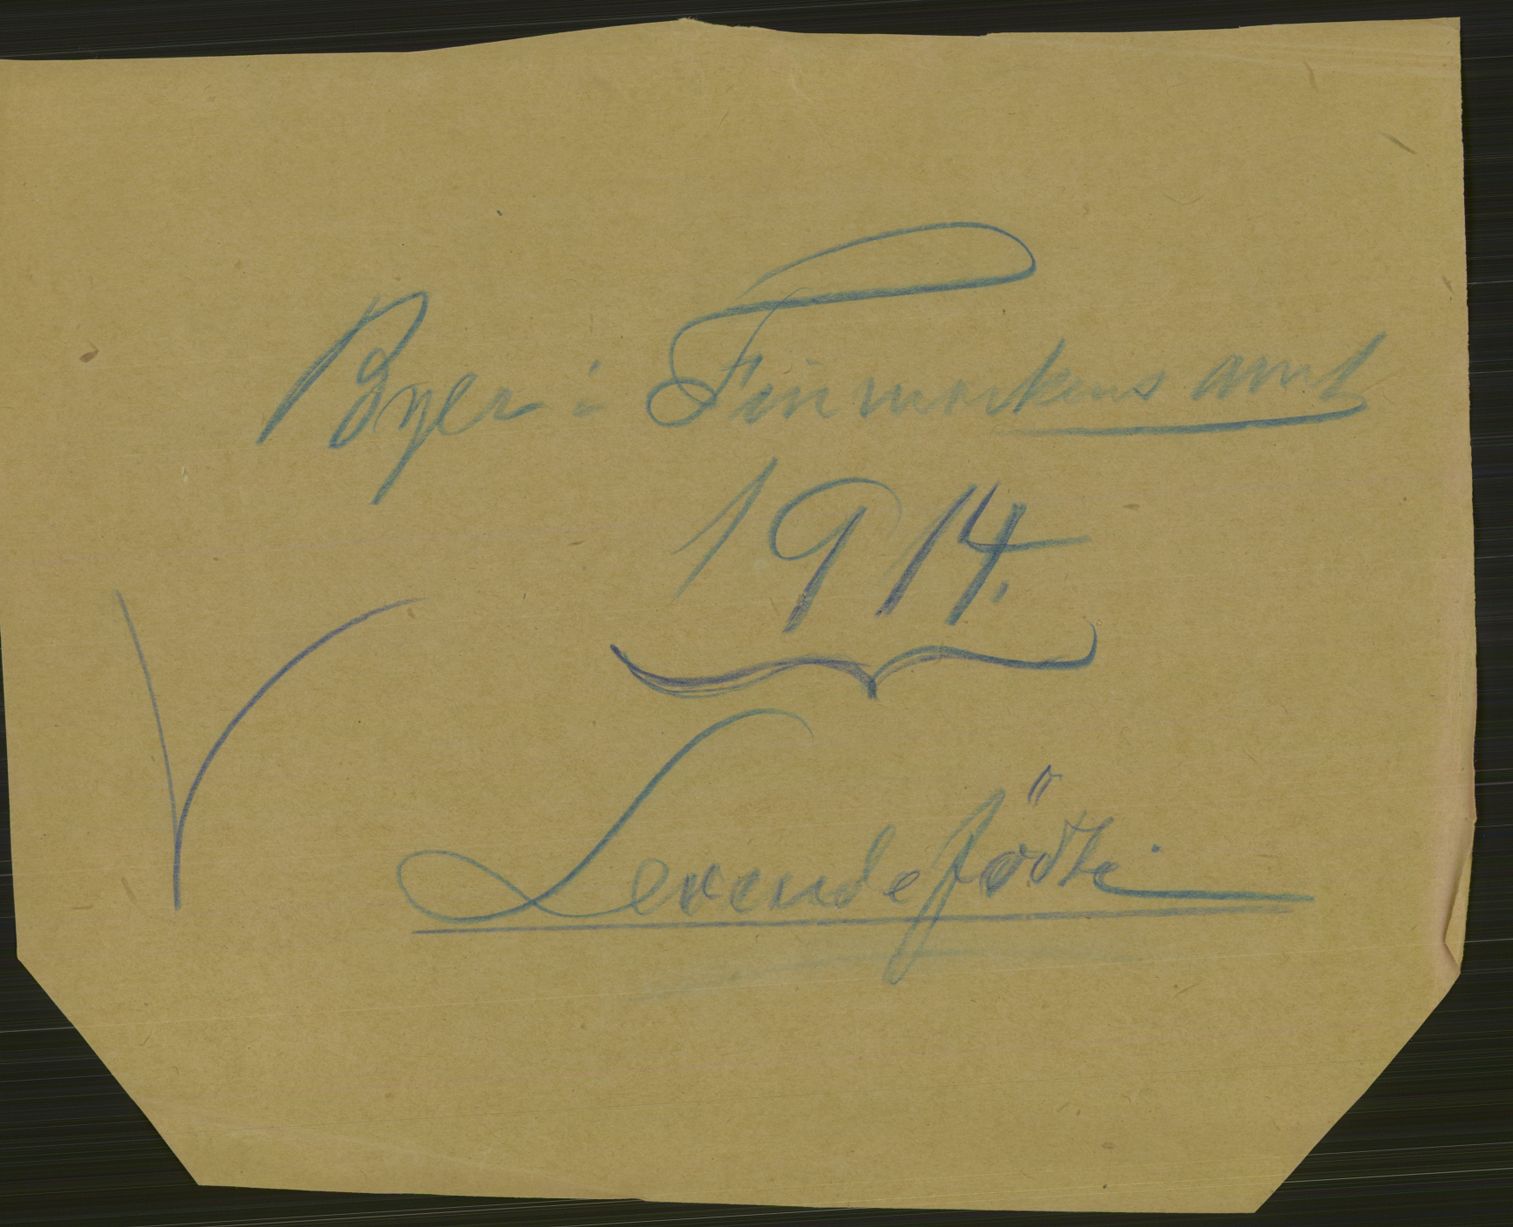 Byer i Finmarkens amt
1914.
Levendefödte.